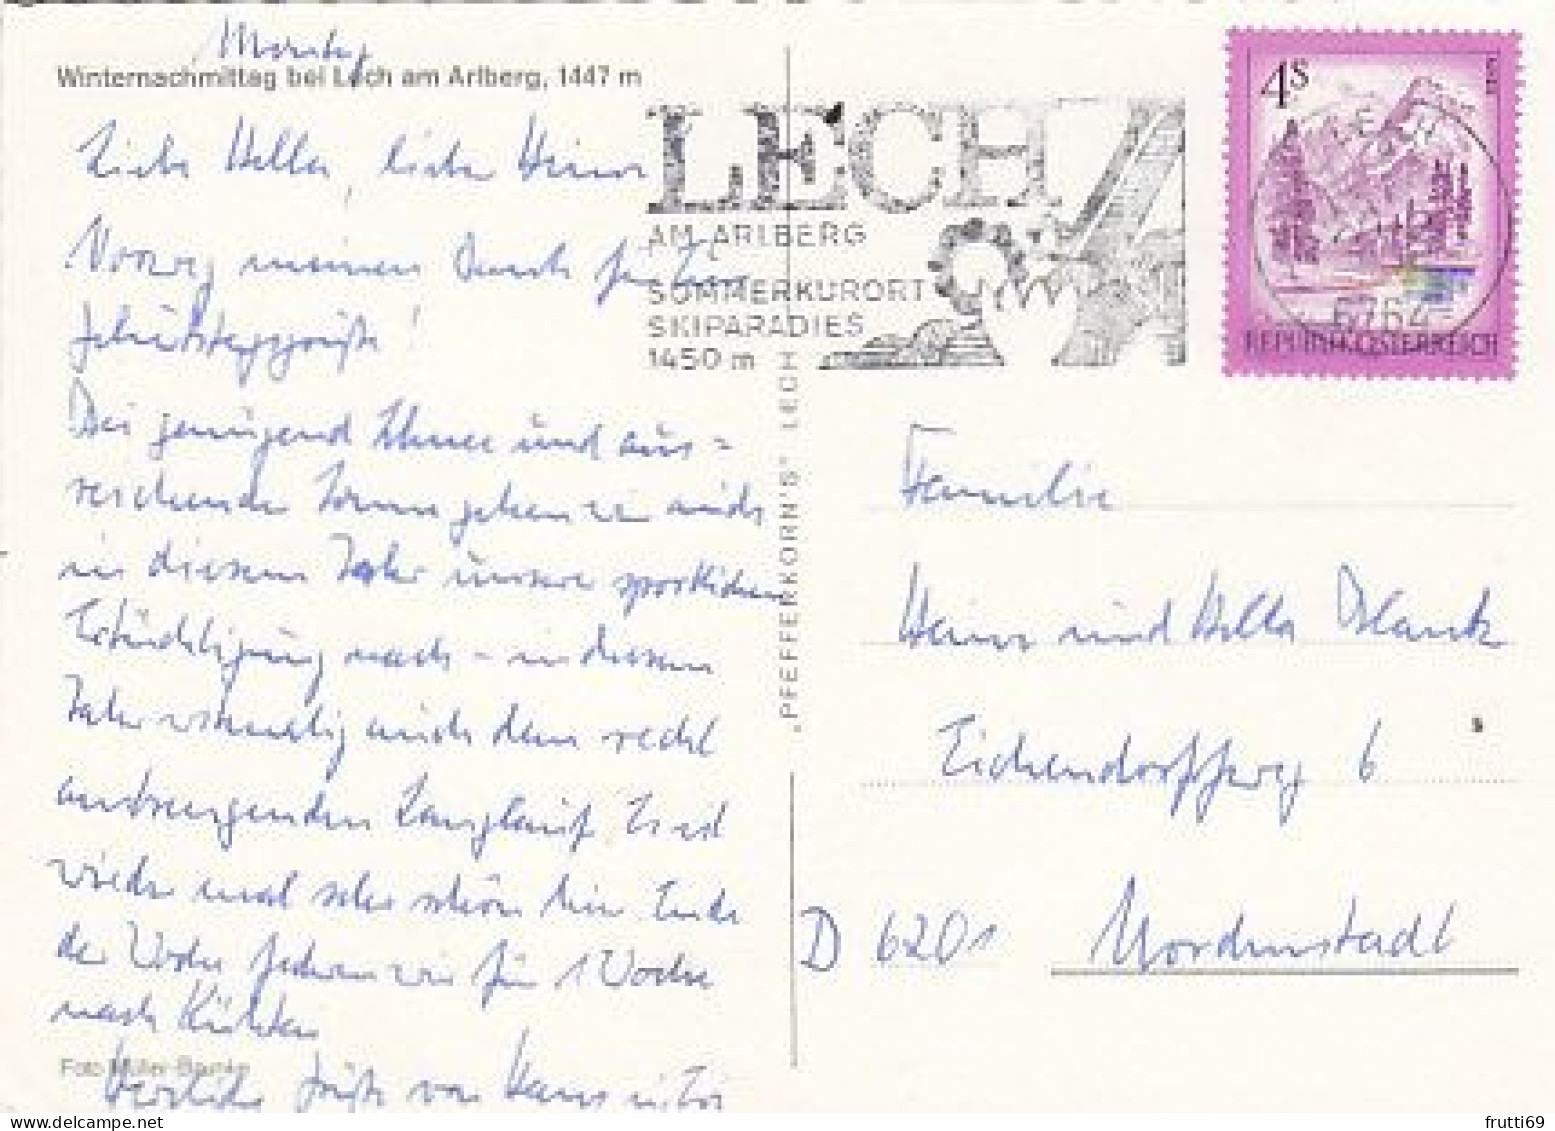 Montag
Winternachmittag bei Lech am Arlberg, 1447 m
Liebe Hella, lieber Heinz
Vorweg meinen Dank für
Geburtstagsgrüße!
Bei genügend Schnee und aus=
reichender Sonne gehen wir auch
in diesem Jahr unserer sportlichen
Ertüchtigung nach - in diesem
Jahr erstmalig auch dem recht
anstrengenden Langlauf. Es ist
wieder mal sehr schön hier. Ende
der Woche fahren wir für 1 Woche
nach
Foto Müller-Brunke
Herzliche Grüße von Hans u.
"PFEFFERKORN'S" LECH
LECH
AM ARLBERG
SOMMERKURORT
SKIPARADIES
1450 m
4S
LECH
6764
REPUBLIK ÖSTERREICH
Familie
Heinz und Hella Blank
Eichendorffweg 6
D 6201 Nordenstadt
frutti69
www.delcampe.net